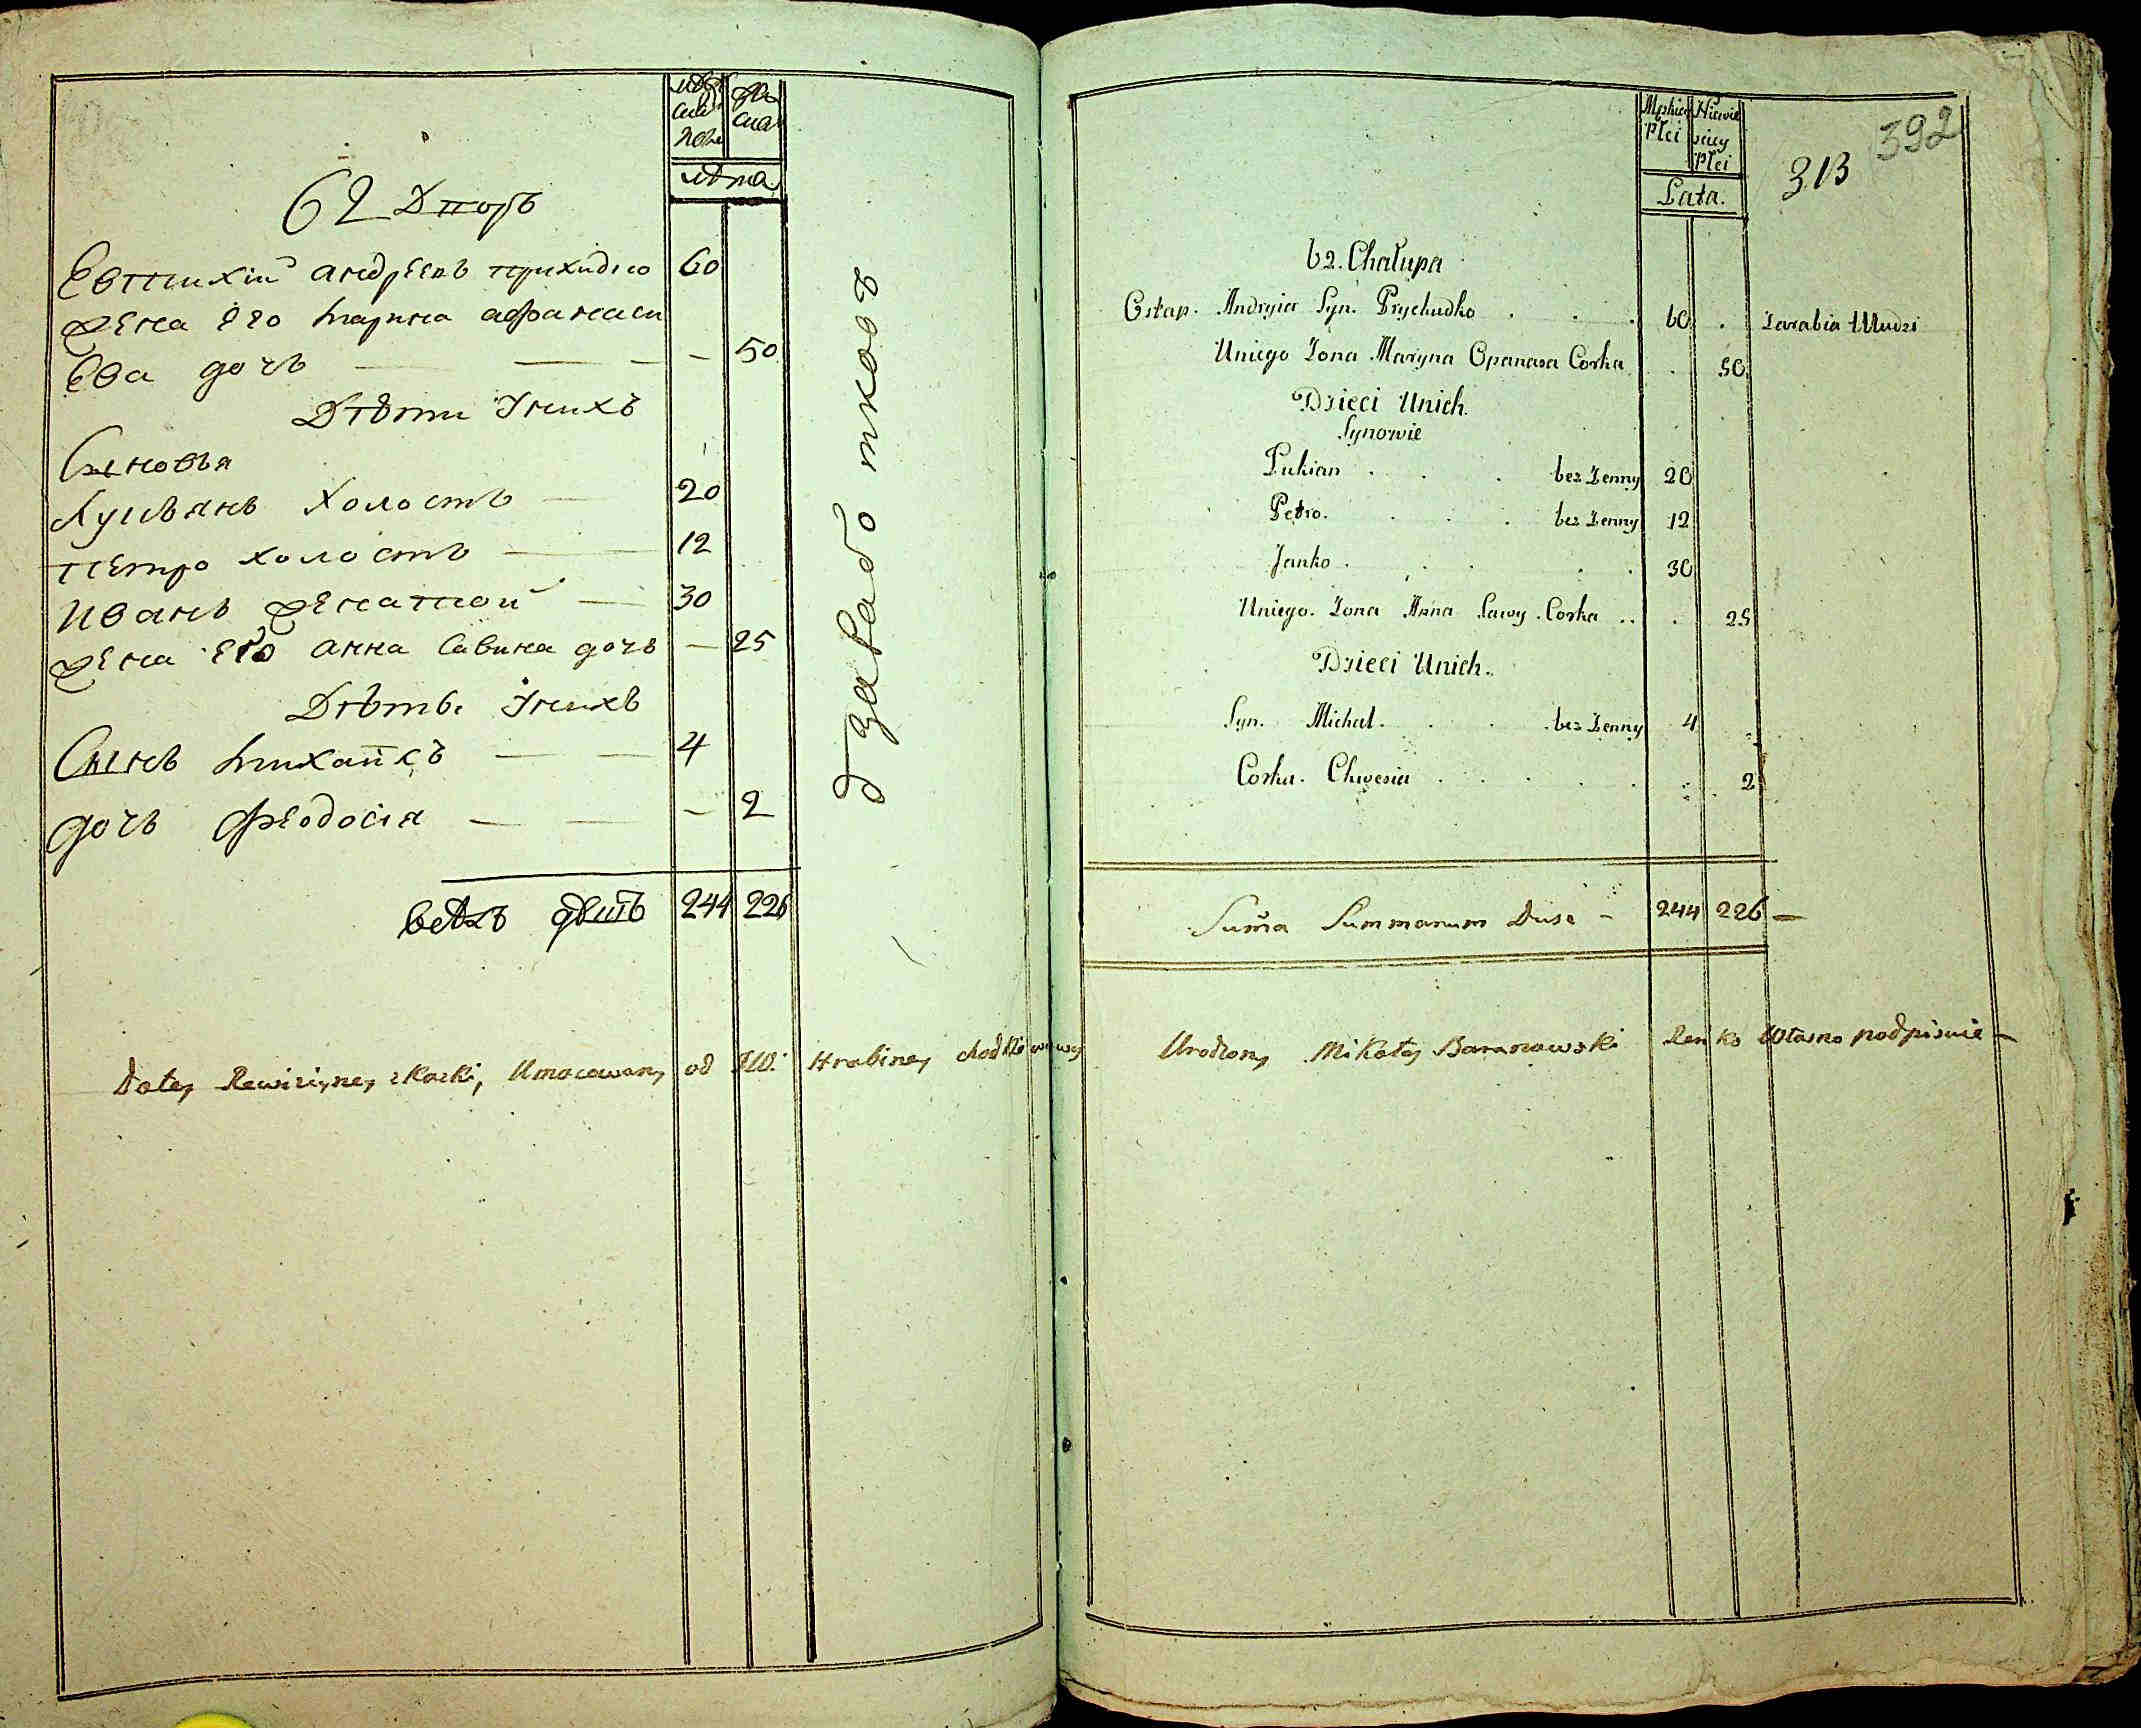 62 Дворъ
лѣта
Евтихій Андреевъ прихидко 60
жена его Марина афанаси
ева дочъ — 50
Дѣти У нихъ
Сыновья
Лукьянъ холостъ 20
петро холостъ 12
иванъ женатой 30
жена его анна савина дочъ — 25
Дѣти У нихъ
Сынъ михайлъ 4
дочъ феодосія — 2
всѣхъ душъ 244 226
заработковъ
Datey Rewizyiney skaski, Umocowany od JW. Hrabiney Chodkiewiczowey
Męskiey Płci
Niewieściey Płci
Lata.
313
392
62. Chałupa
Ostap. Andryia Syn. Prychudko . . . 60 . Zarabia u ludzi
Uniego Zona Maryna Opanasa Corka . . 50.
Dzieci Unich.
Synowie
Łukian . . . bez Zenny 20
Petro. . . . bez Zenny 12
Janko . . . . 30
Uniego. Zona Anna Sawy. Corka .. . 25
Dzieci Unich.
Syn. Michał. . . . bez Zenny 4
Corka. Chwesia . . . . . . 2
Summa Summarum Dusz — 244 226 —
Urodzony Mikołay Baranowski Renką Własną podpisuie —